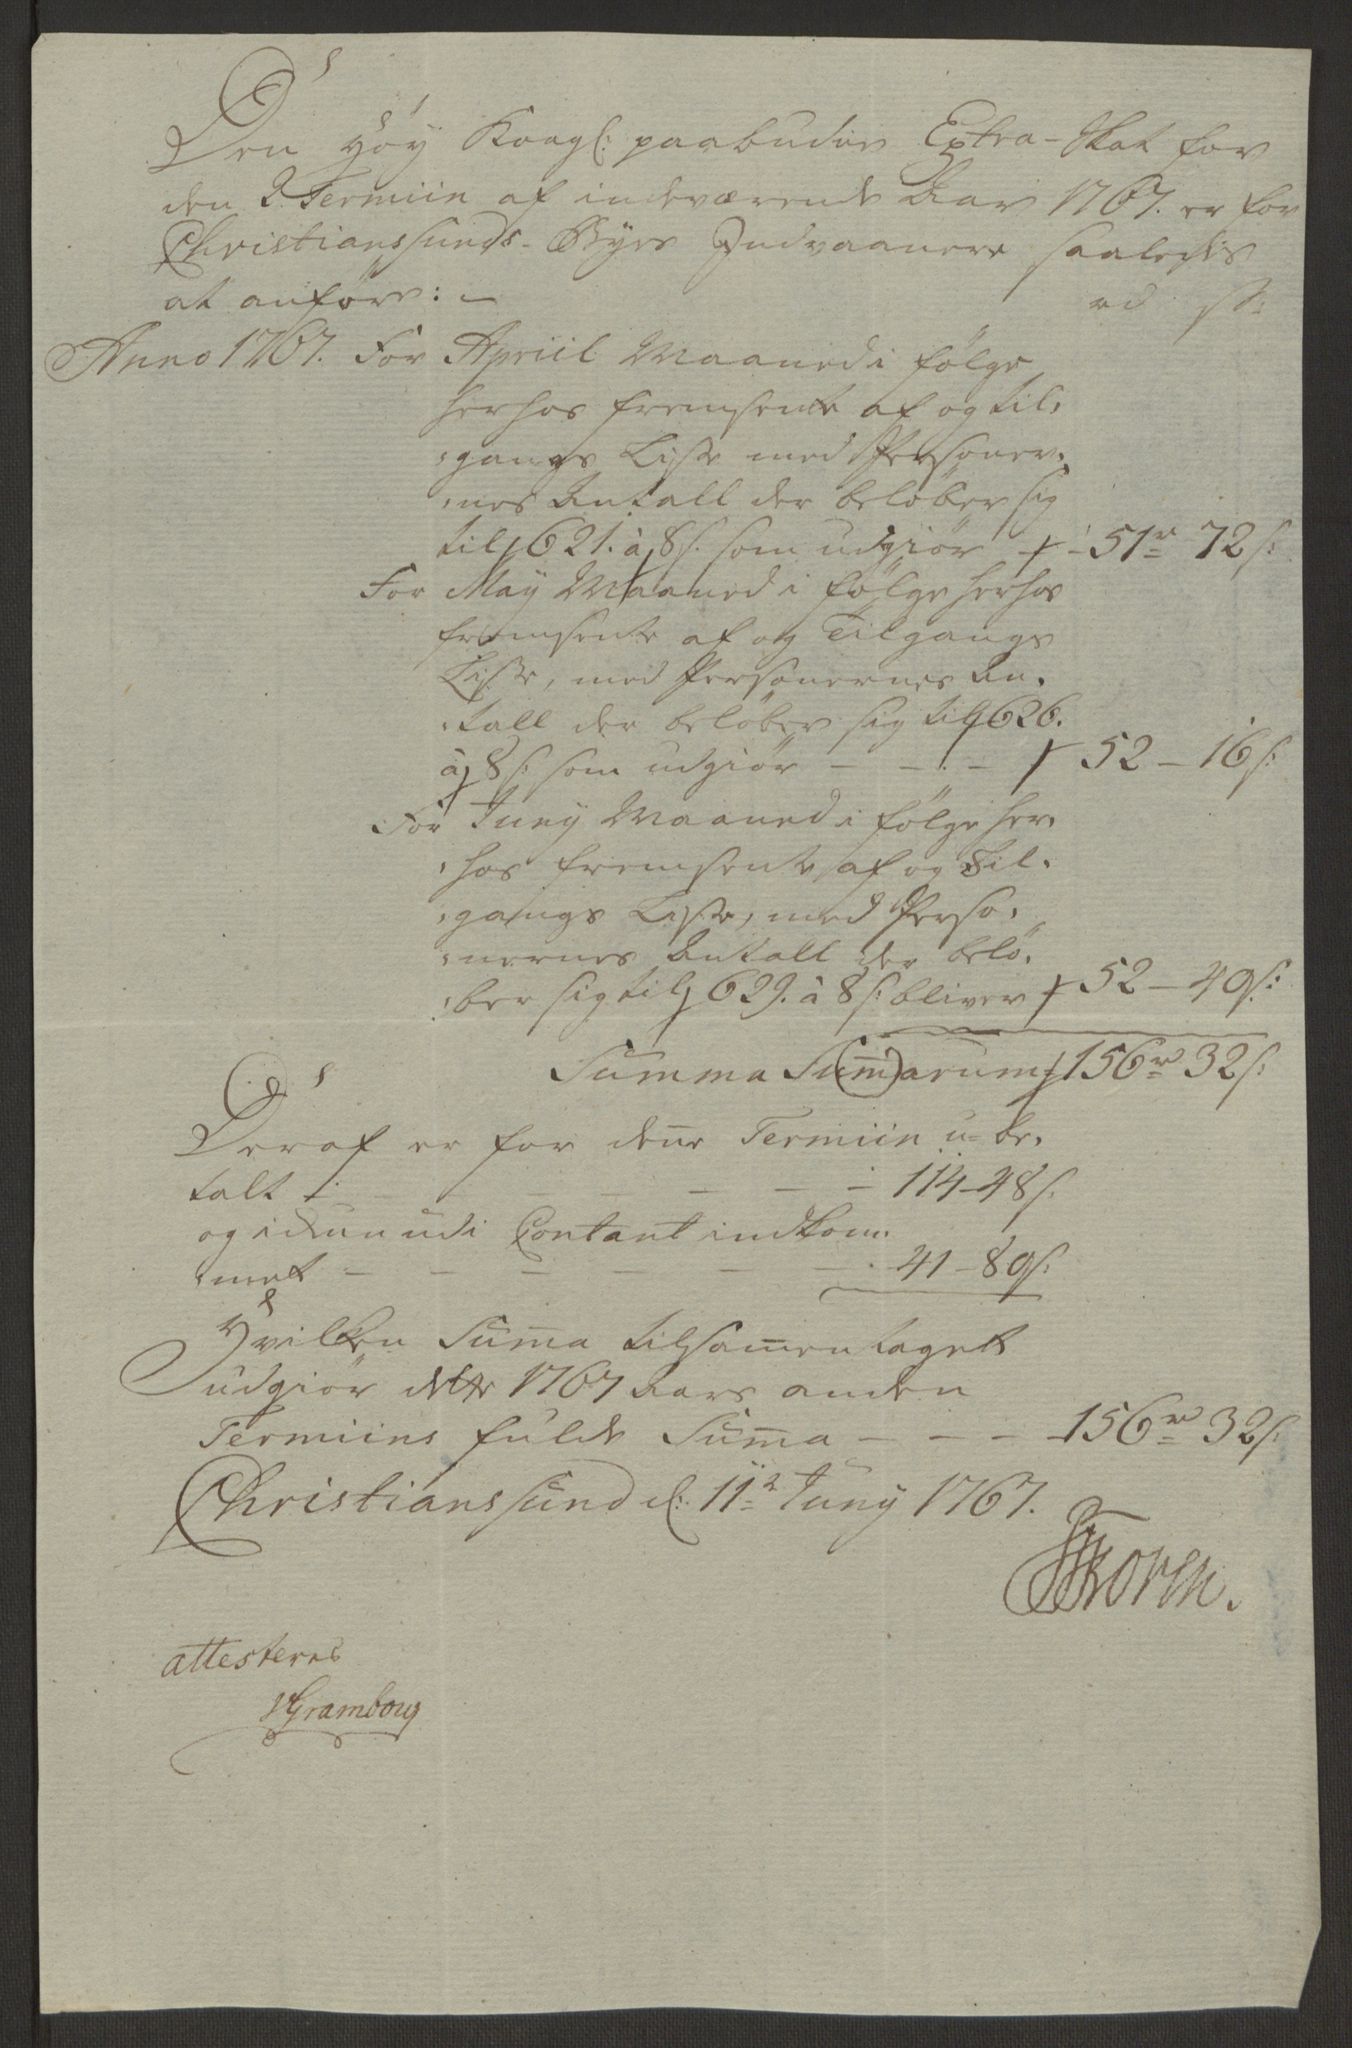 Den Høy Kongl: paabudne Extra-Skat for
den 2. Termiin af indeværende Aar 1767. er for
Christianssunds-Byes Indvaanere saaledes
at anføre: -
rd s:
Anno 1767. For Apriil Maaned i følge
herhos fremsente af og til,
,gangs Liste med Persomer,
,nes Antall der beløber sig
til 621. à 8 s: som udgiør - 51 r 72 s:
For May Maaned i følge herhos
fremsente af og Tilgangs
Liste, med Personernes An,
,tall der beløber sig til 626.
à 8 s: som udgiør - - - 52 - 16 s:
For Juny Maaned i følge her,
,hos fremsente af og Til,
,gangs Liste, med Perso,
,nernes Antall der belø,
,ber sig til 629. à 8 s: bliver 52 - 40 s:
Summa Sum̅arum 156 r 32 s:
Deraf er for den̅e Termiin u-be,
talt - - - - - - 114 - 48 s:
og ickun udi Contant indkom,
,met - - - - - - 41 - 80 s:
Hvilken Sum̅a tilsam̅en taget
udgiør dette 1767 Aars anden
Termiins fulde Sum̅a - - - 156 r 32 s:
Christianssund d: 11te Juny 1767.
Koren.
attesteres
Grambow